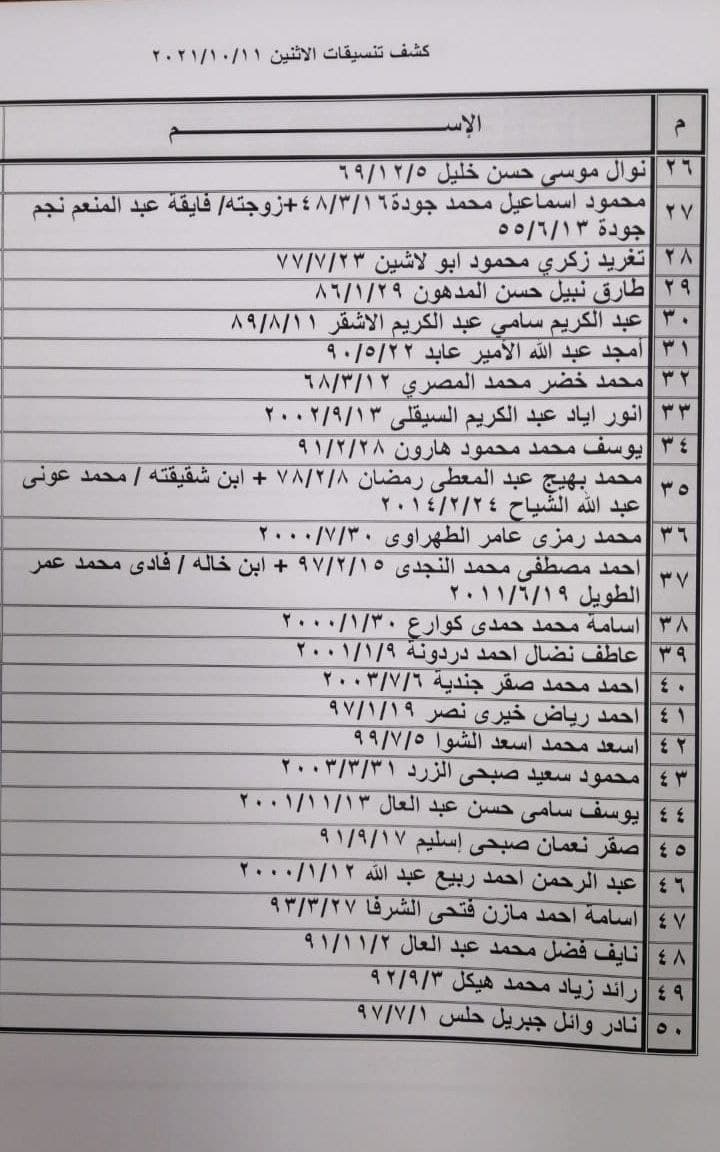 كشف تنسيقات الاثنين ٢٠٢١/١٠/١١
م الإســـــــــــم
٢٦ نوال موسى حسن خليل ٦٩/١٢/٥
٢٧ محمود اسماعيل محمد جودة٤٨/٣/١٦+زوجته/ فايقة عبد المنعم نجم
جودة ٥٥/٦/١٣
٢٨ تغريد زكري محمود ابو لاشين ٧٧/٧/٢٣
٢٩ طارق نبيل حسن المدهون ٨٦/١/٢٩
٣٠ عبد الكريم سامي عبد الكريم الاشقر ٨٩/٨/١١
٣١ أمجد عبد الله الأمير عابد ٩٠/٥/٢٢
٣٢ محمد خضر محمد المصري ٦٨/٣/١٢
٣٣ انور اياد عبد الكريم السيقلى ٢٠٠٢/٩/١٣
٣٤ يوسف محمد محمود هارون ٩١/٢/٢٨
٣٥ محمد بهيج عبد المعطى رمضان ٧٨/٢/٨ + ابن شقيقته / محمد عونى
عبد الله الشياح ٢٠١٤/٢/٢٤
٣٦ محمد رمزى عامر الطهراوى ٢٠٠٠/٧/٣٠
٣٧ احمد مصطفى محمد النجدى ٩٧/٢/١٥ + ابن خاله / فادى محمد عمر
الطويل ٢٠١١/٦/١٩
٣٨ اسامة محمد حمدى كوارع ٢٠٠٠/١/٣٠
٣٩ عاطف نضال احمد دردونة ٢٠٠١/١/٩
٤٠ احمد محمد صقر جندية ٢٠٠٣/٧/٦
٤١ احمد رياض خيرى نصر ٩٧/١/١٩
٤٢ اسعد محمد اسعد الشوا ٩٩/٧/٥
٤٣ محمود سعيد صبحى الزرد ٢٠٠٣/٣/٣١
٤٤ يوسف سامى حسن عبد العال ٢٠٠١/١١/١٣
٤٥ صقر نعمان صبحى إسليم ٩١/٩/١٧
٤٦ عبد الرحمن احمد ربيع عبد الله ٢٠٠٠/١/١٢
٤٧ اسامة احمد مازن فتحى الشرفا ٩٣/٣/٢٧
٤٨ نايف فضل محمد عبد العال ٩١/١١/٢
٤٩ رائد زياد محمد هيكل ٩٢/٩/٣
٥٠ نادر وائل جبريل حلس ٩٧/٧/١